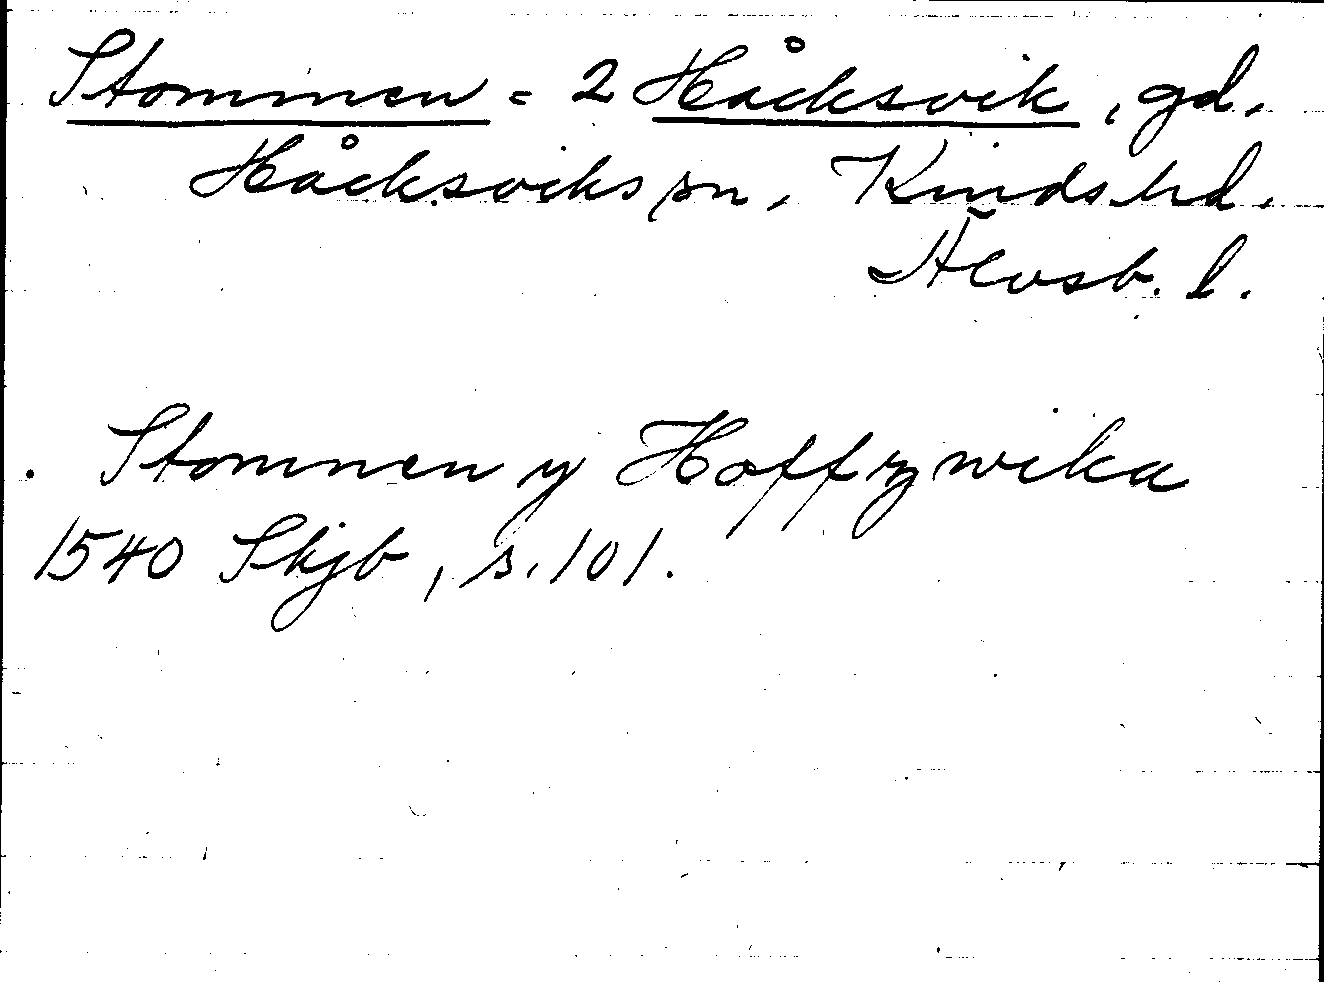 Stommen = 2 Håcksvik, gd.
Håcksviks sn, Kinds hd.
Älvsb. l.
Stommen y Hoffzwika
1540 Skjb, s. 101.